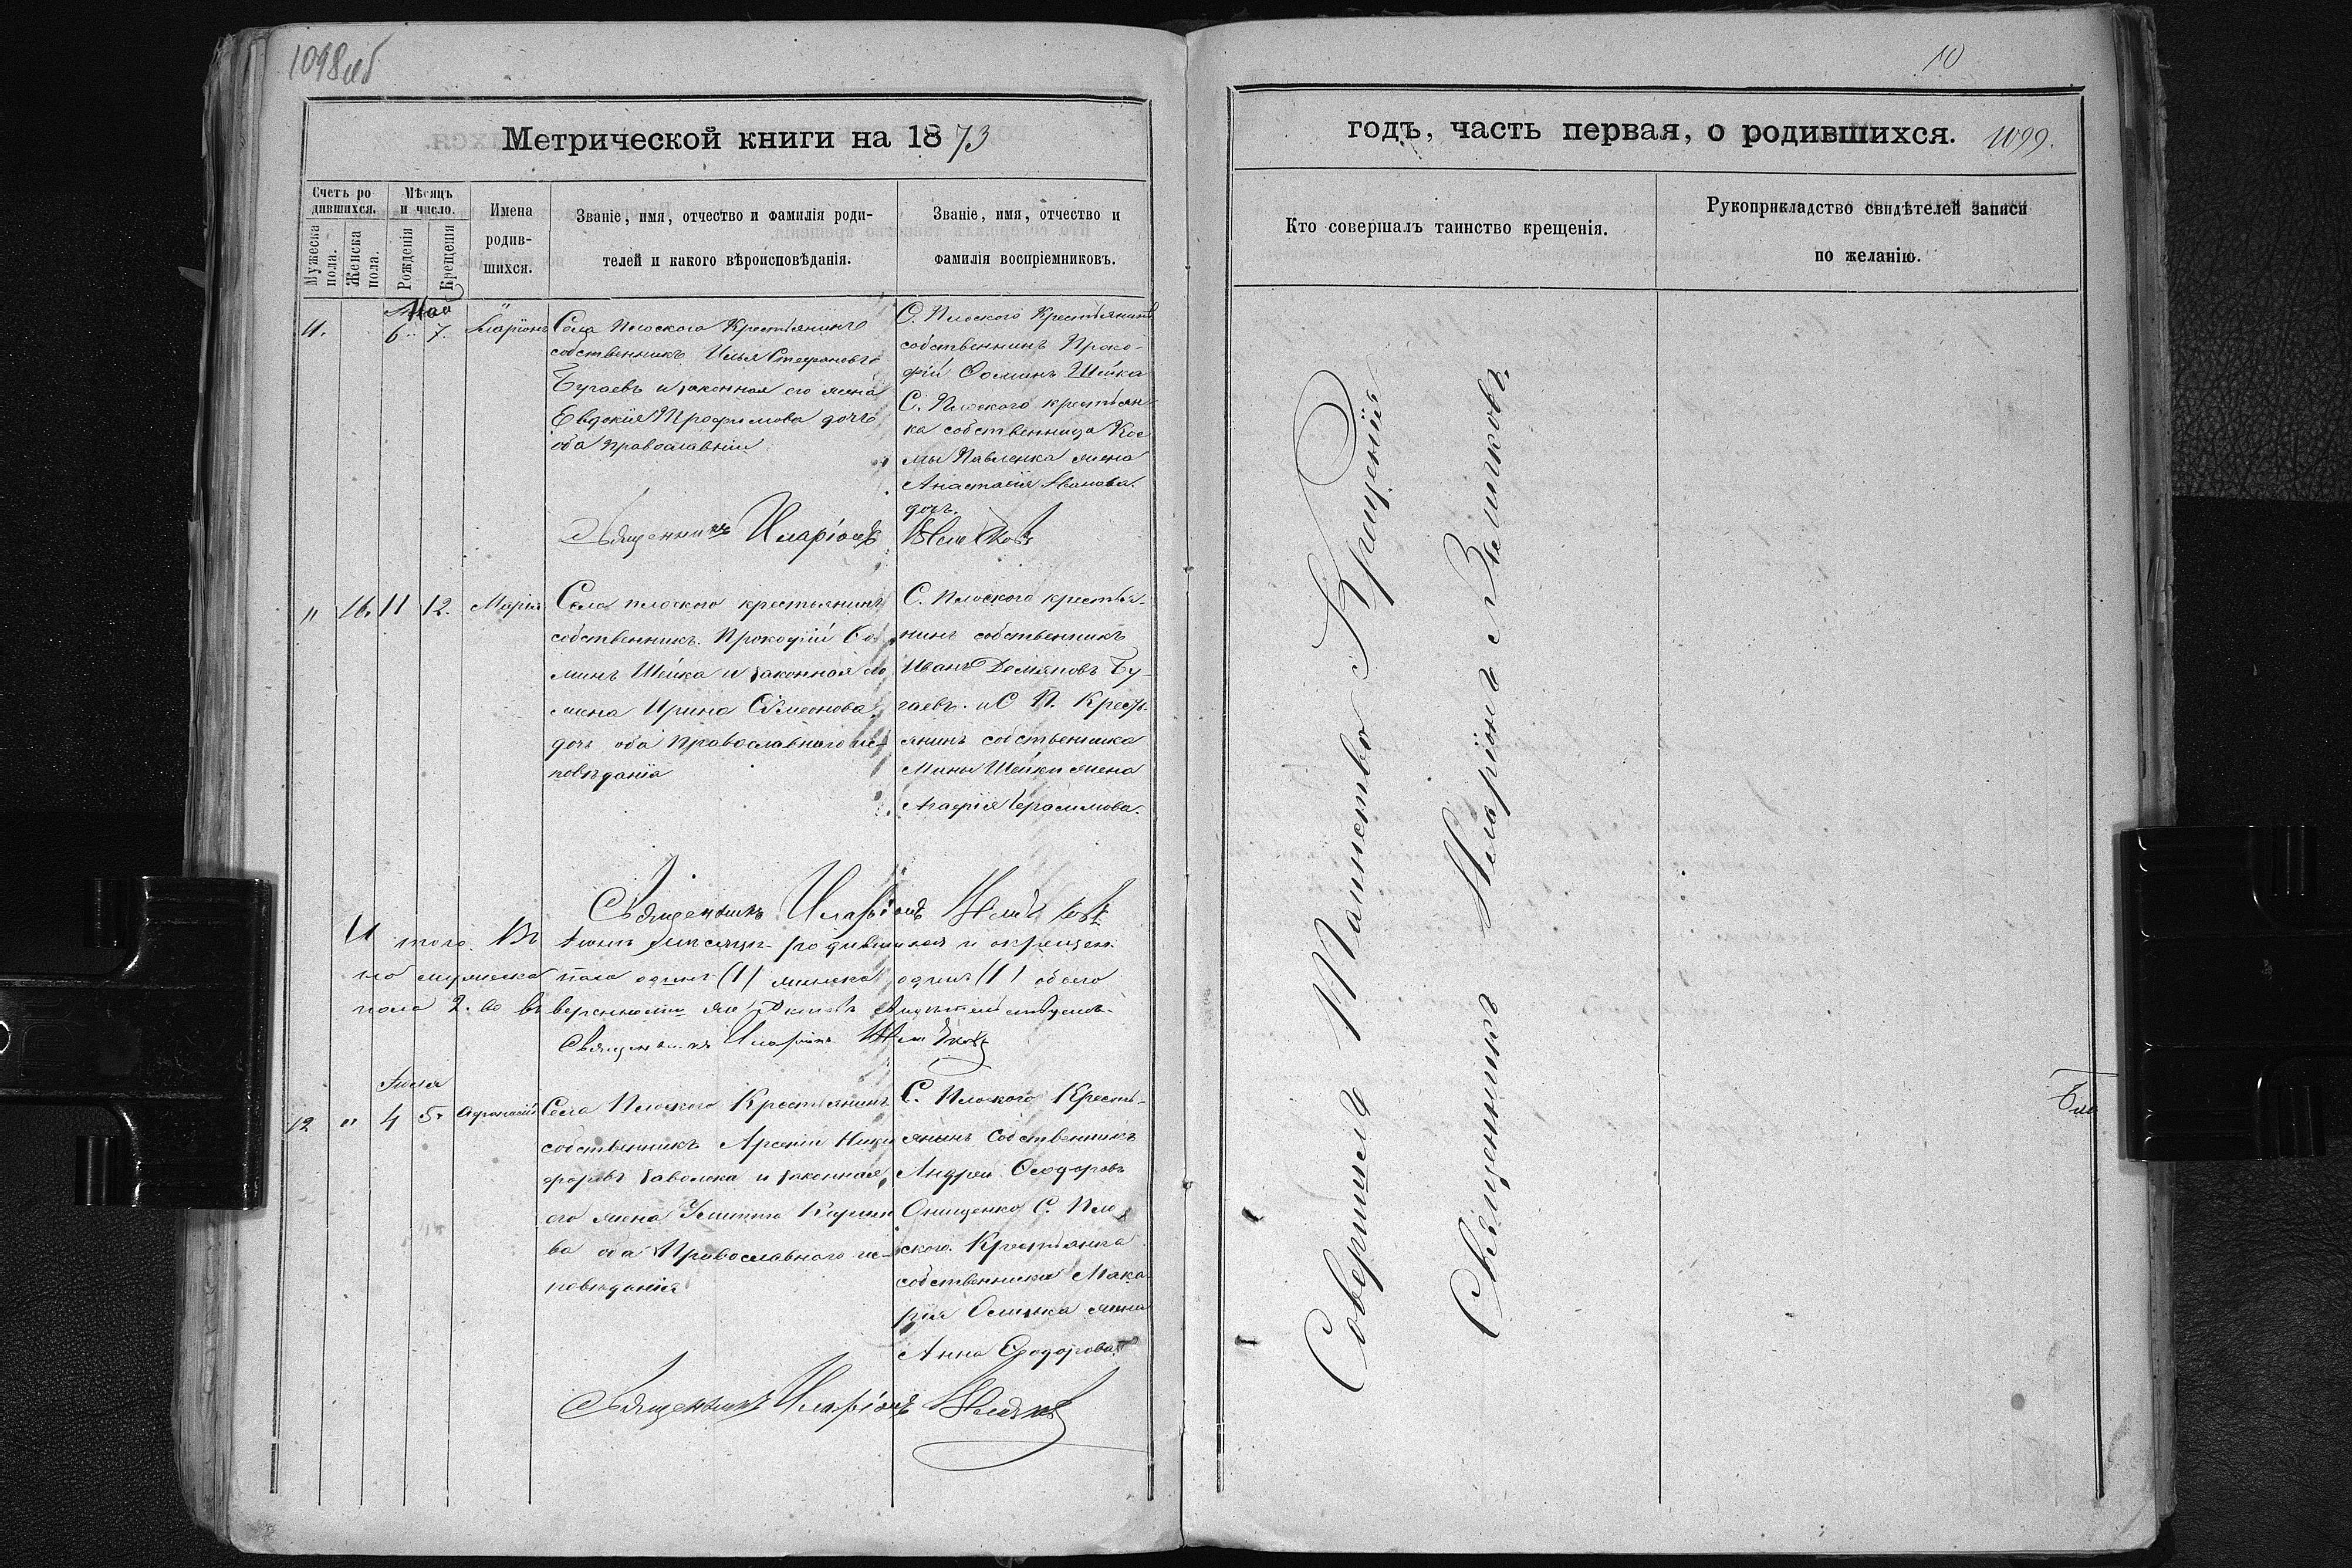 1098об
Метрической книги на 1873
Счетъ родившихся.
Мужеска пола.
Женска пола.
Мѣсяцъ и число.
Рожденія
Крещенія
Имена родив-
шихся.
Званіе, имя, отчество и фамилія роди-
телей и какого вѣроисповѣданія.
Званіе, имя, отчество и
фамилія воспріемниковъ.
Май
11. 6. 7.
Села Плоского Крестьянинъ
собственникъ Илья Стефановъ
Бугаевъ и законная его жена
Евдокія Трофимова дочь
оба православніи
С. Плоского Крестьянинъ
собственникъ Проко-
фій Фоминъ Шейка
С. Плоского крестьян
ка собственница Кос
мы Павленка жена
Анастасія Иванова
дочь.
Священникъ Иларіонъ
" 16. 11 12. Марія
Села плоского крестьянинъ
собственникъ Прокофій Фо
минъ Шейка и законная его
жена Ирина Симеонова
дочь оба православнаго ис-
повѣданія
С. Плоского крестья-
нинъ собственникъ
Иванъ Демяновъ Бу
гаевъ. и С П. Кресть-
янинъ собственика
Мины Шейки жена
Агафія Герасимова.
Священникъ Иларіонъ
Итого Въ Іюнѣ мѣсяцѣ родившихся и окрещен
но мужеска пола одинъ (1) женска одна (1) обоего
пола 2. во вѣрности
Священникъ Иларіонъ
Іюля
12 " 4 5. Афанасій
Села Плоского Крестьянинъ
собственникъ Арсеній Ники
форовъ и законная
его жена
ва оба Православнаго ис-
повѣданія
С. Плоского Кресть-
янинъ Собственникъ
Андрей Феодоровъ
Онищенко С. Пло
ского Крестьянка
собственника Мака
рія жена
Анна Феодорова
Священникъ Иларіонъ
10
годъ, часть первая, о родившихся. 1099.
Кто совершалъ таинство крещенія.
Рукоприкладство свидѣтелей записи
по желанію.
Совершилъ Таинство Крещенія
Священникъ Иларіонъ